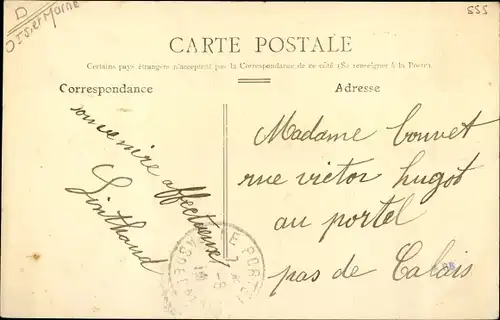 D
555
CARTE POSTALE
Certains pays étrangers n'acceptent pas la Correspondance de ce côté (Se renseigner à la Poste).
Correspondance
Adresse
souvenire affectueux
Madame Couvet
rue victor hugot
au portel
pas de Calais
LE PORTEL
PAS DE CALAIS